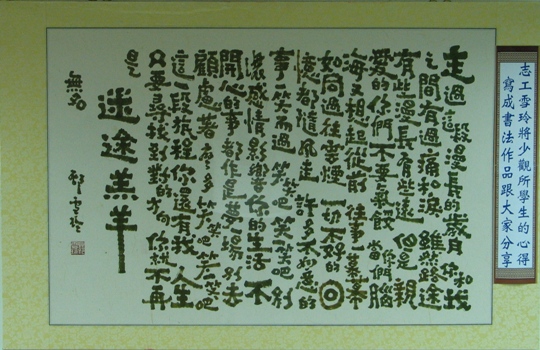 志工雪玲將少觀所學生的心得
寫成書法作品跟大家分享
走過這段漫長的歲月 你和我
之間有過痛和淚 雖然路途
有些漫長 有些遠 但是 親
愛的你們不要氣餒 當你們腦
海又想起從前 往事一幕幕
如同過往雲煙 一切不好的
憶都隨風走 許多不如意的
事一笑而過 笑笑吧 笑一笑吧 別
讓感情影響你的生活 不
開心的事 都作是夢一場 別去
顧慮著有多 笑吧 笑一笑吧
這一段旅程 你還有我 人生
只要尋找到對的方向 你就不再
是
迷途羔羊
無名